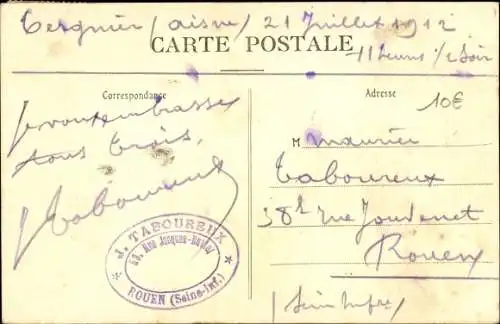 Tergnier (aisne) 21 Juillet 1912
CARTE POSTALE
11 heures 1/2 Soir
Correspondance
Adresse
10€
Je vous embrasse
tous trois.
Taboureux
M maurice
Taboureux
58 rue
Rouen
(Seine Infre)
J. TABOUREUX
Rue Jacques
ROUEN (Seine-Inf.)